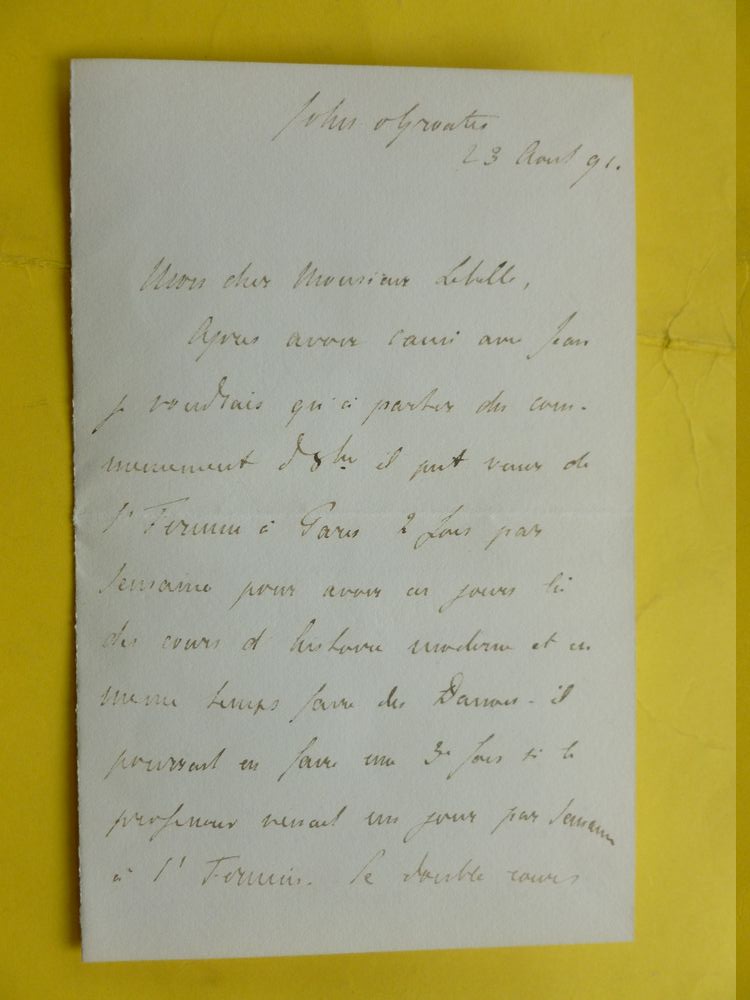 John o Groates
23 Aout 91.
Mon cher Monsieur Lebelle,
Apres avoir causé avec Jean
je voudrais qu'à partir du com-
mencement d'8bre il put venir de
St Firmin à Paris 2 fois par
semaine pour avoir ces jours là
des cours d'histoire moderne et en
meme temps faire du Danois - il
pourrait en faire une 3e fois si le
professeur venait un jour par semaine
à St Firmin. Ce double cours